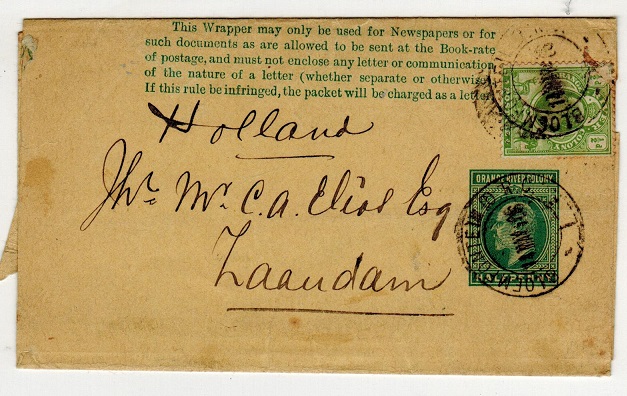 This Wrapper may only be used for Newspapers or for
such documents as are allowed to be sent at the Book-rate
of postage, and must not enclose any letter or communication
of the nature of a letter (whether separate or otherwise
If this rule be infringed, the packet will be charged as a letter
Holland
Mr. C. A. Eliot Esq
Zaandam
ORANGE RIVER COLONY
HALFPENNY